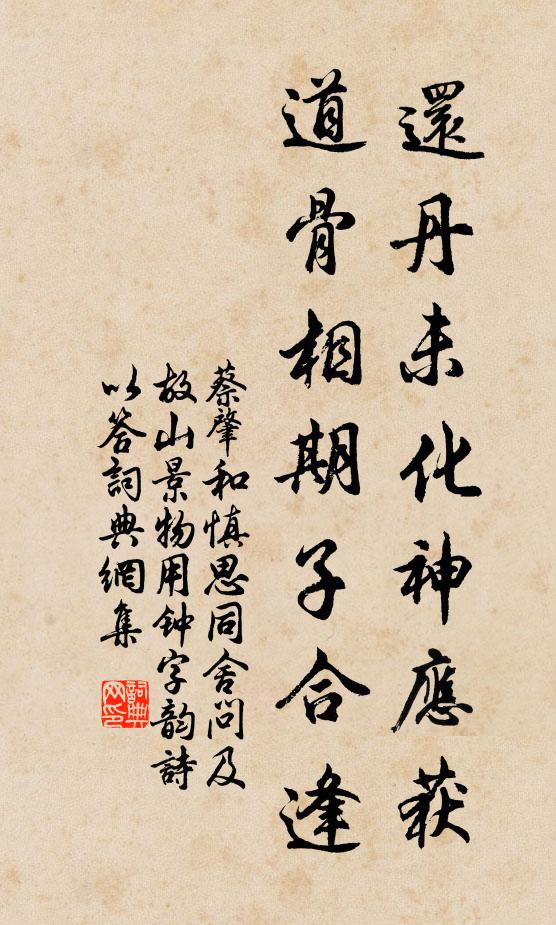 還丹未化神應获
道骨相期子合逢
蔡肇和慎思同舍问及
故山景物用钟字韵詩
以答詞典網集
詞典
网印